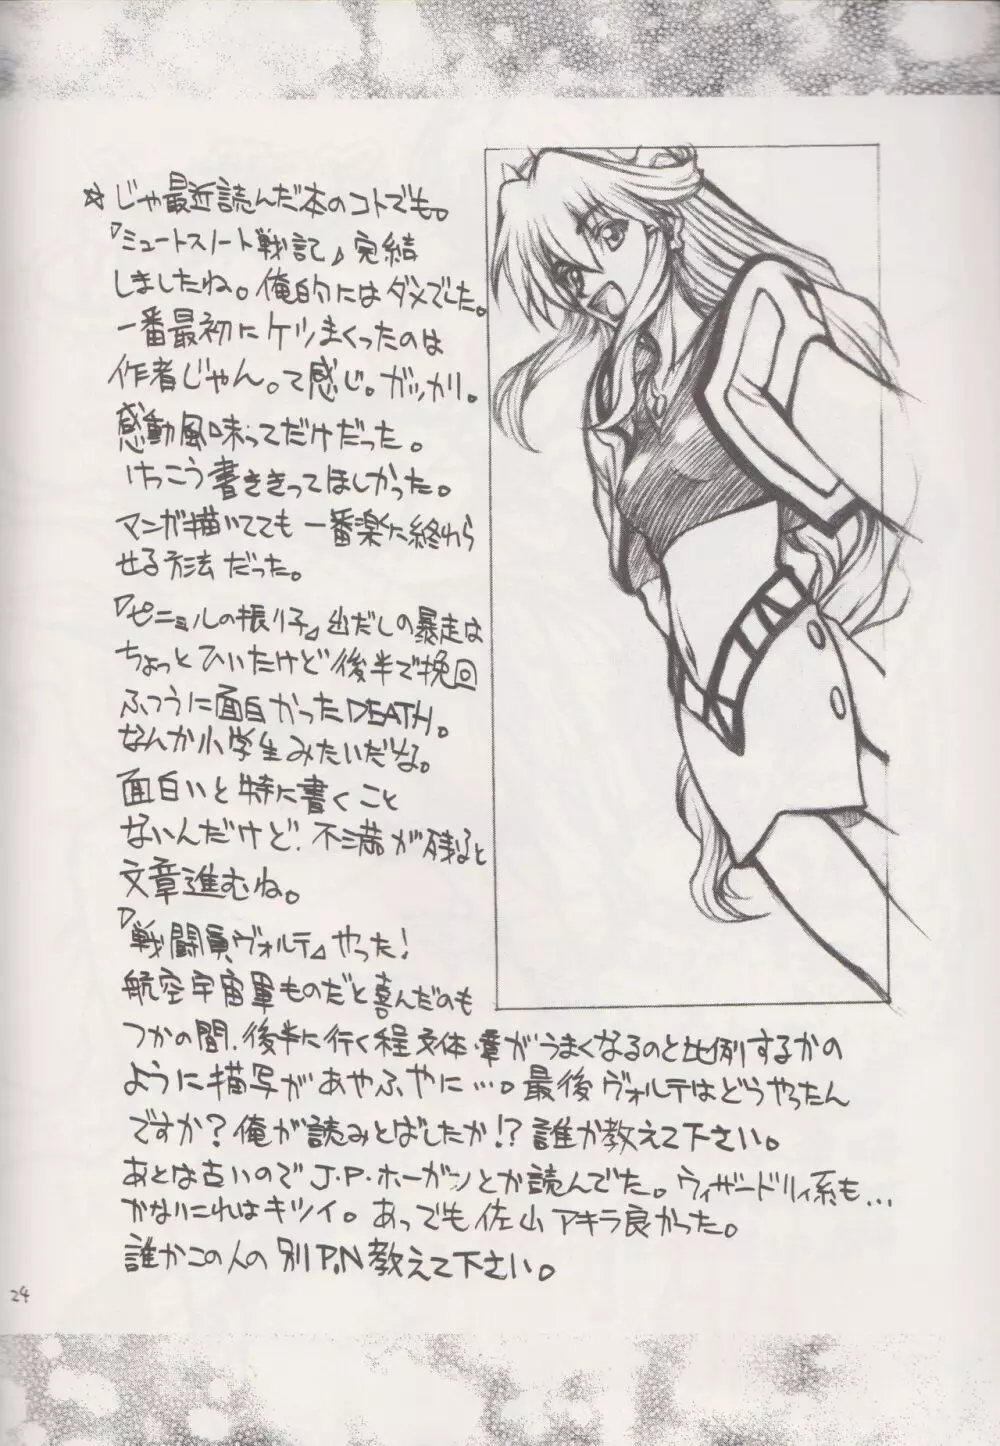 ☆じゃ最近読んだ本のコトでも。
『ミュートスノート戦記』完結
しましたね。俺的にはダメでした。
一番最初にケツまくったのは
作者じゃん。て感じ。ガッカリ。
感動風味ってだけだった。
けっこう書ききってほしかった。
マンガ描いてても一番楽な終わら
せる方法だった。
『ピニェルの振り子』出だしの暴走は
ちょっとひいたけど後半で挽回
ふつうに面白かったDEATH。
なんか小学生みたいだな。
面白いと特に書くこと
ないんだけど、不満が残ると
文章進むね。
『戦闘員ヴォルテ』やった!
航空宇宙軍ものだと喜んだのも
つかの間、後半に行く程文体・章がうまくなるのと比例するかの
ように描写があやふやに…。最後ヴォルテはどうやったん
ですか?俺が読みとばしたか!?誰か教えて下さい。
あとは古いのでJ・P・ホーガンとか読んでた。ウィザードリィ系も…
かないこれはキツイ。あっでも佐山アキラ良かった。
誰かこの人の別P.N教えて下さい。
24